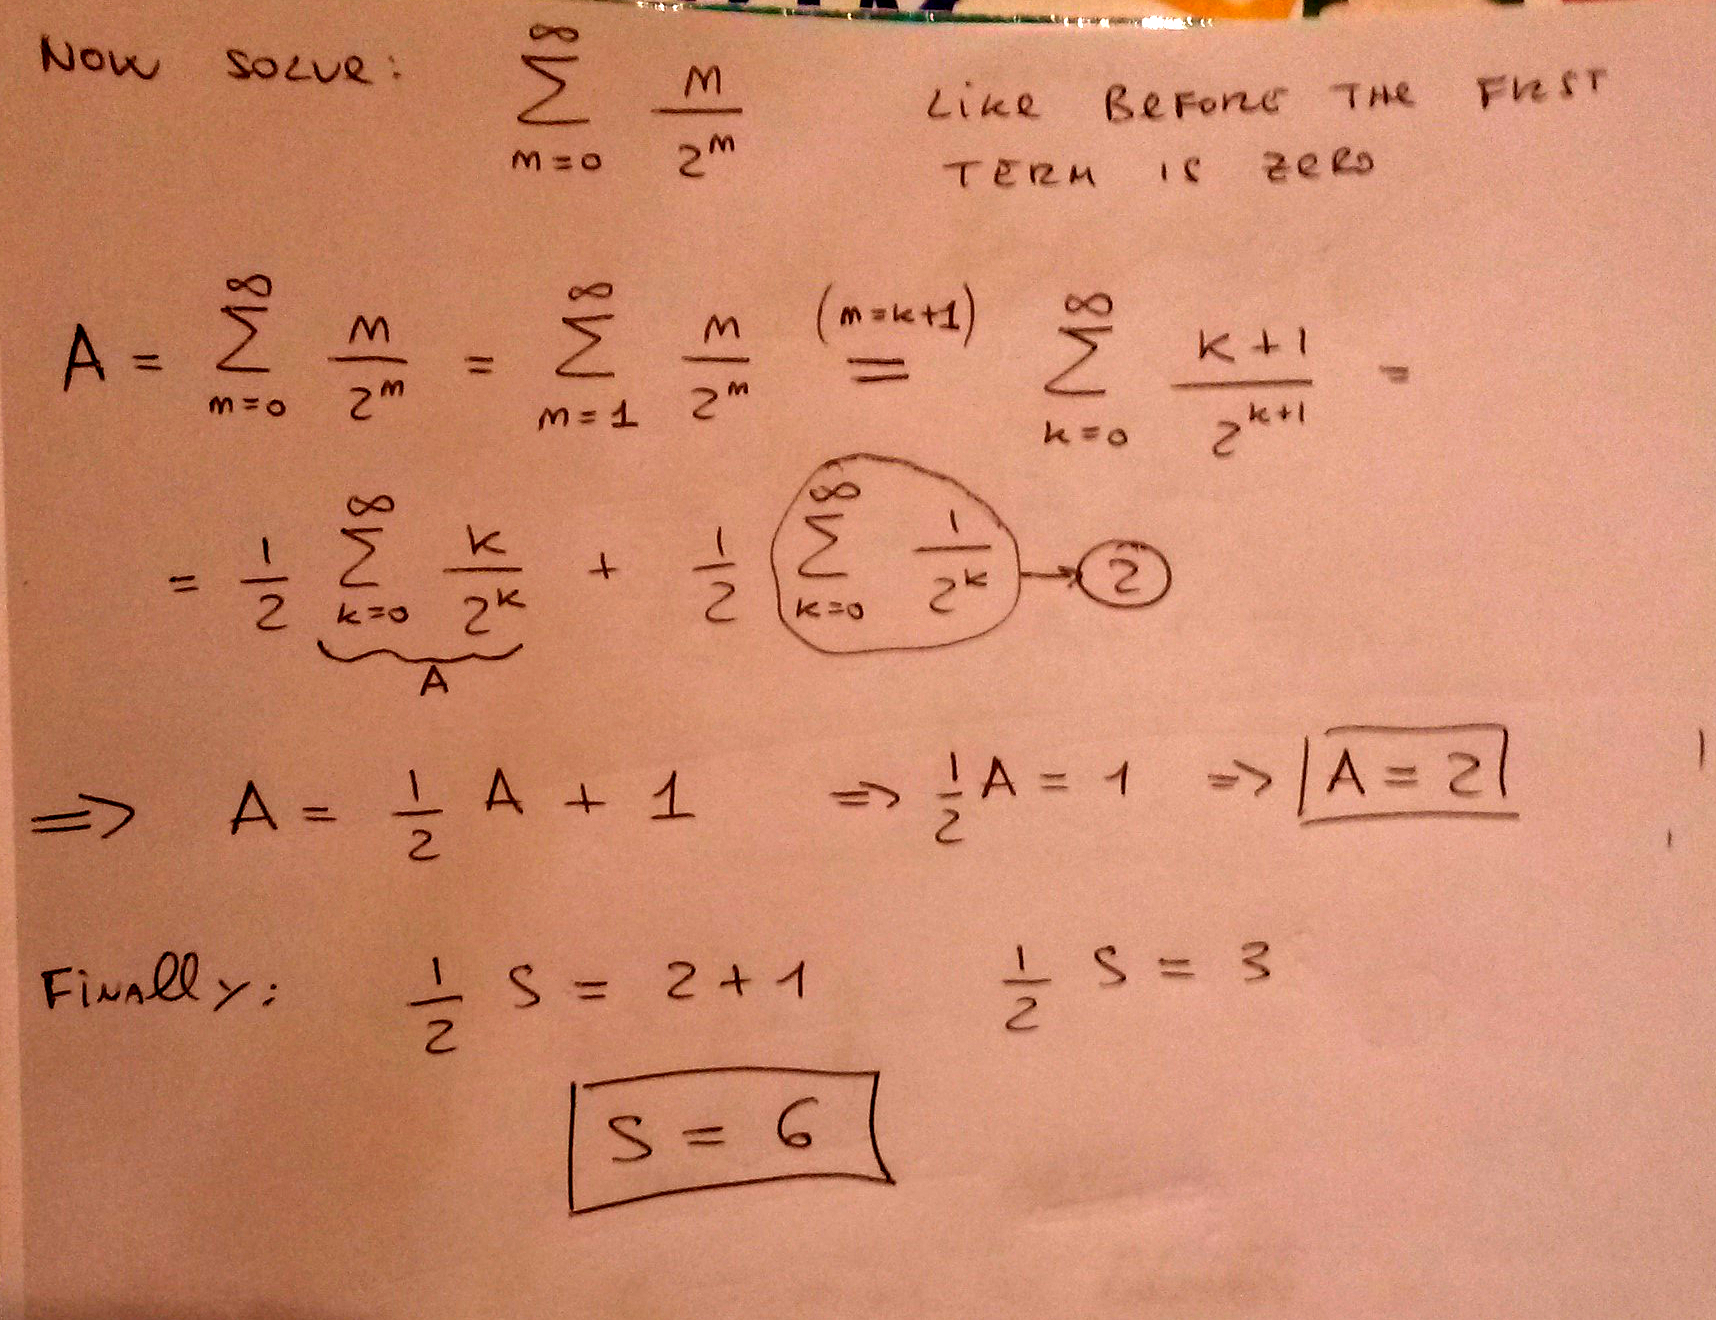 Now solve: ∞ ∑ m=0 m/2^m Like Before The First
Term is zero
A = ∞ ∑ m=0 m/2^m = ∞ ∑ m=1 m/2^m (m=k+1) = ∞ ∑ k=0 k+1/2^k+1 =
= 1/2 ∞ ∑ k=0 k/2^k + 1/2 ∞ ∑ k=0 1/2^k → 2
A
=> A = 1/2 A + 1 => 1/2 A = 1 => A = 2
Finally: 1/2 S = 2+1 1/2 S = 3
S = 6